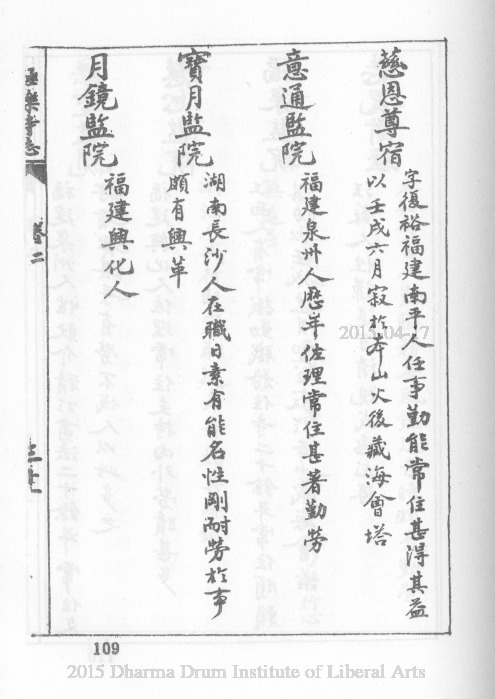 慈恩尊宿
字復裕福建南平人任事勤能常住甚得其益
以壬戌六月寂於本山火後藏海會塔
意通監院
福建泉州人歷年佐理常住甚著勤勞
寶月監院
湖南長沙人在職日素有能名性剛耐勞於事
頗有興革
月鏡監院
福建興化人
極樂寺志
卷二
109
2015-04-17
2015 Dharma Drum Institute of Liberal Arts